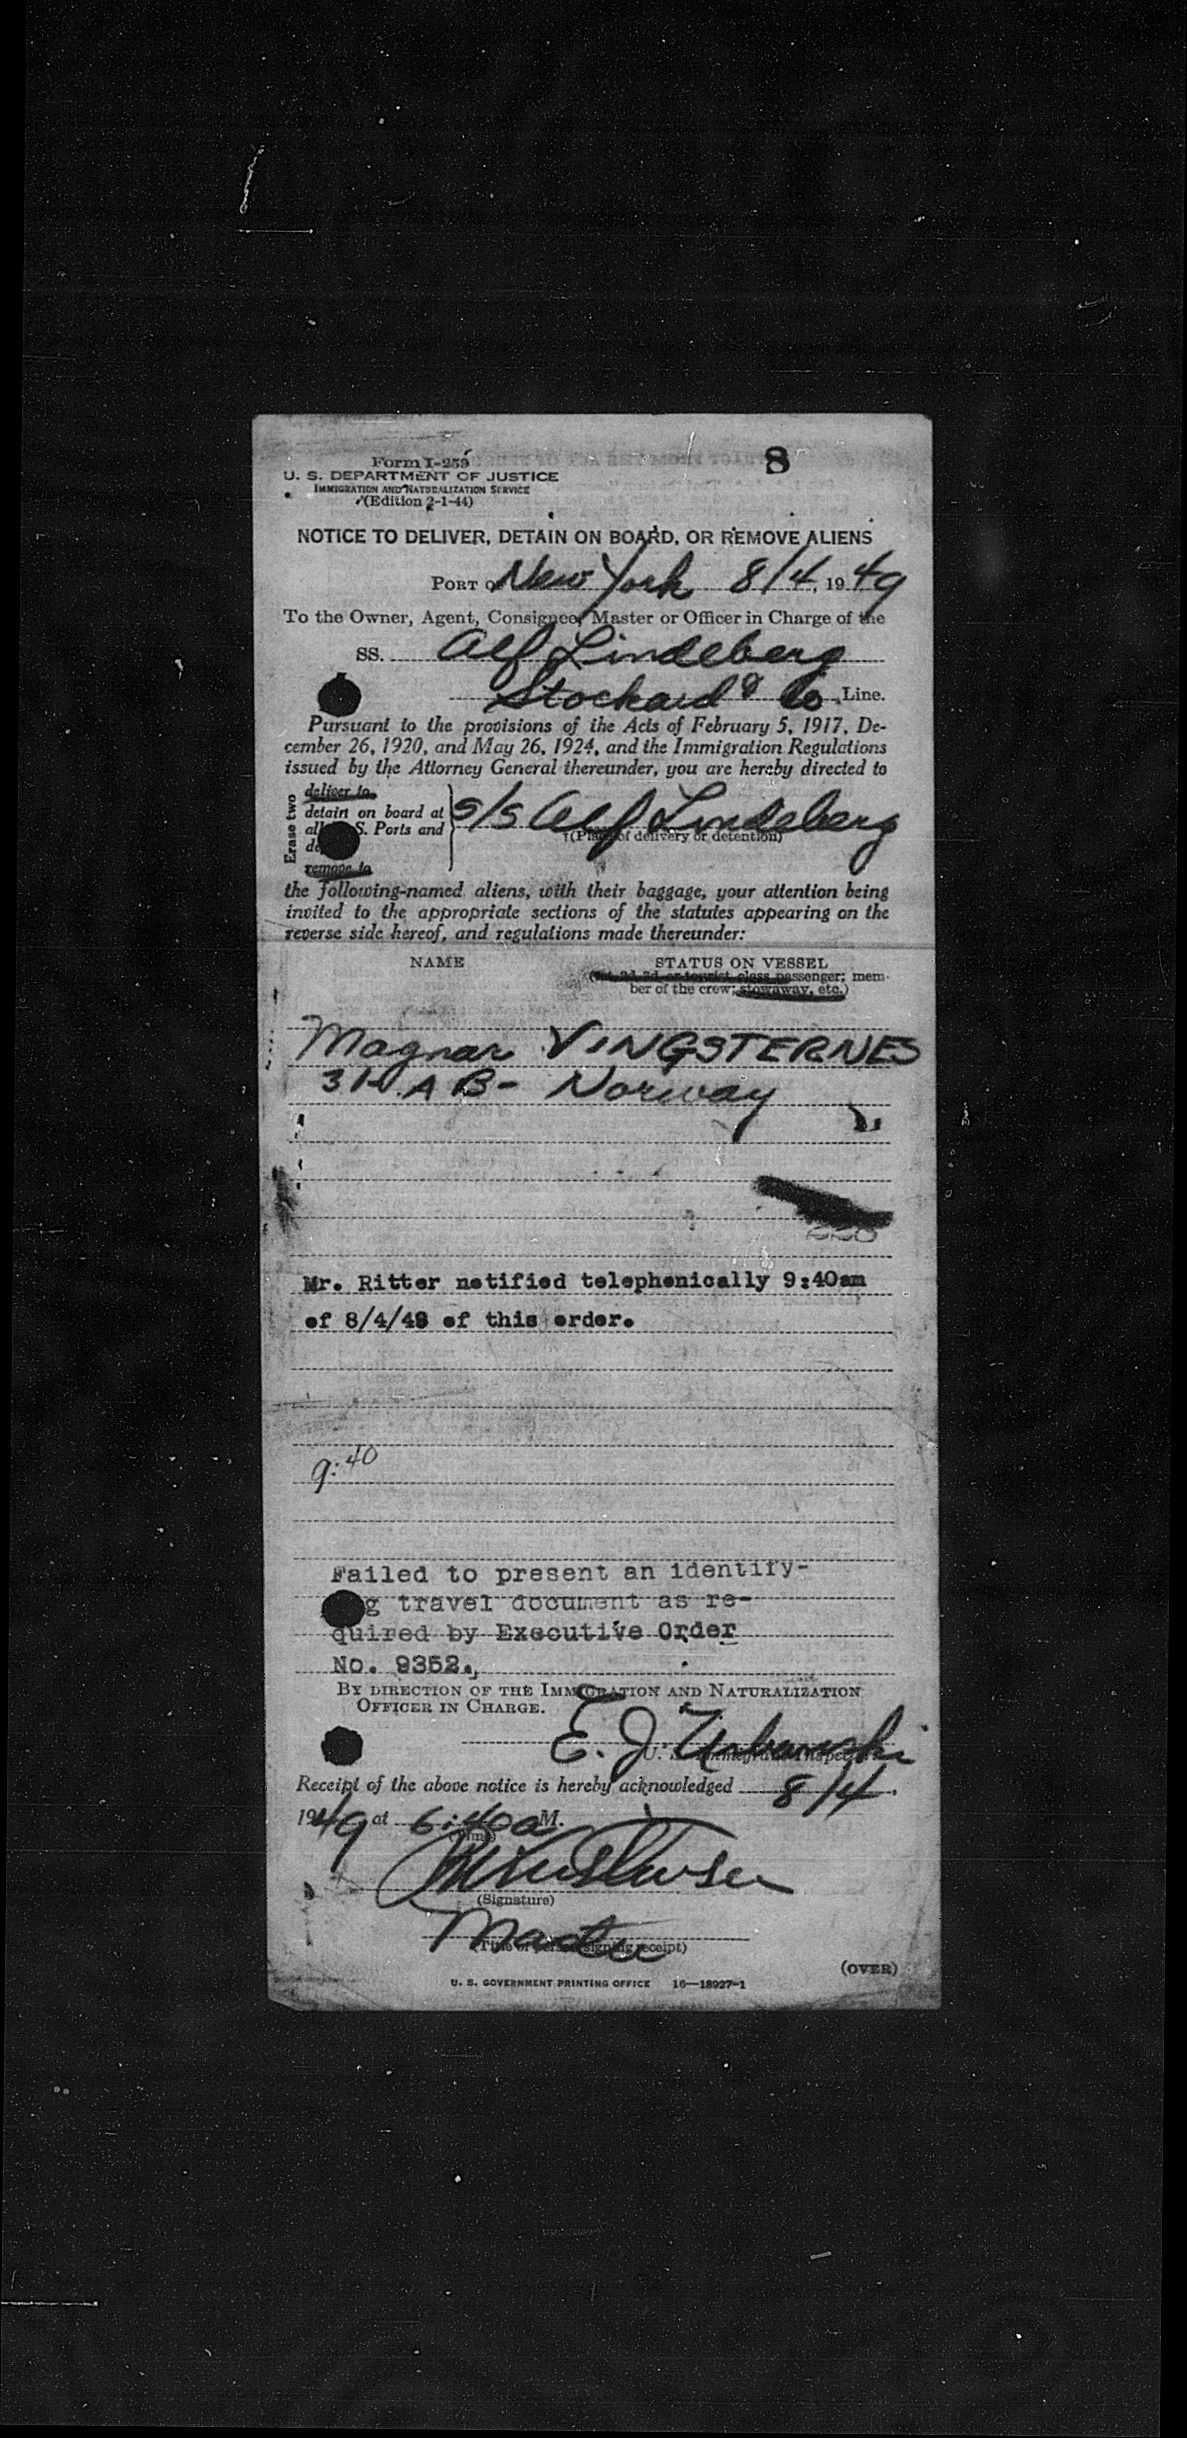 8
Form I-259
U. S. DEPARTMENT OF JUSTICE
IMMIGRATION AND NATURALIZATION SERVICE
(Edition 2-1-44)
NOTICE TO DELIVER, DETAIN ON BOARD, OR REMOVE ALIENS
PORT OF New York 8/4, 1949
To the Owner, Agent, Consignee, Master or Officer in Charge of the
SS. Alf Lindeberg
Stockard & Co. Line.
Pursuant to the provisions of the Acts of February 5, 1917, De-
cember 26, 1920, and May 26, 1924, and the Immigration Regulations
issued by the Attorney General thereunder, you are hereby directed to
Erase two
deliver to
detain on board at
all S. Ports and
remove to
s/s Alf Lindeberg
†(Place of delivery or detention)
the following-named aliens, with their baggage, your attention being
invited to the appropriate sections of the statutes appearing on the
reverse side hereof, and regulations made thereunder:
NAME STATUS ON VESSEL
(1st, 2d, 3d, or tourist class passenger; mem-
ber of the crew; stowaway, etc.)
Magnar VINGSTERNES
31- AB- Norway
Mr. Ritter notified telephonically 9:40am
of 8/4/49 of this order.
9:40
Failed to present an identify-
g travel document as re-
quired by Executive Order
No. 9352.
BY DIRECTION OF THE IMMIGRATION AND NATURALIZATION
OFFICER IN CHARGE.
E. J. Urbanski
U. S. Immigrant Inspector
Receipt of the above notice is hereby acknowledged 8/4
1949 at 6:40 a M.
(Time)
(Signature)
Master
(Title of person signing receipt)
(OVER)
U. S. GOVERNMENT PRINTING OFFICE 16—18927-1